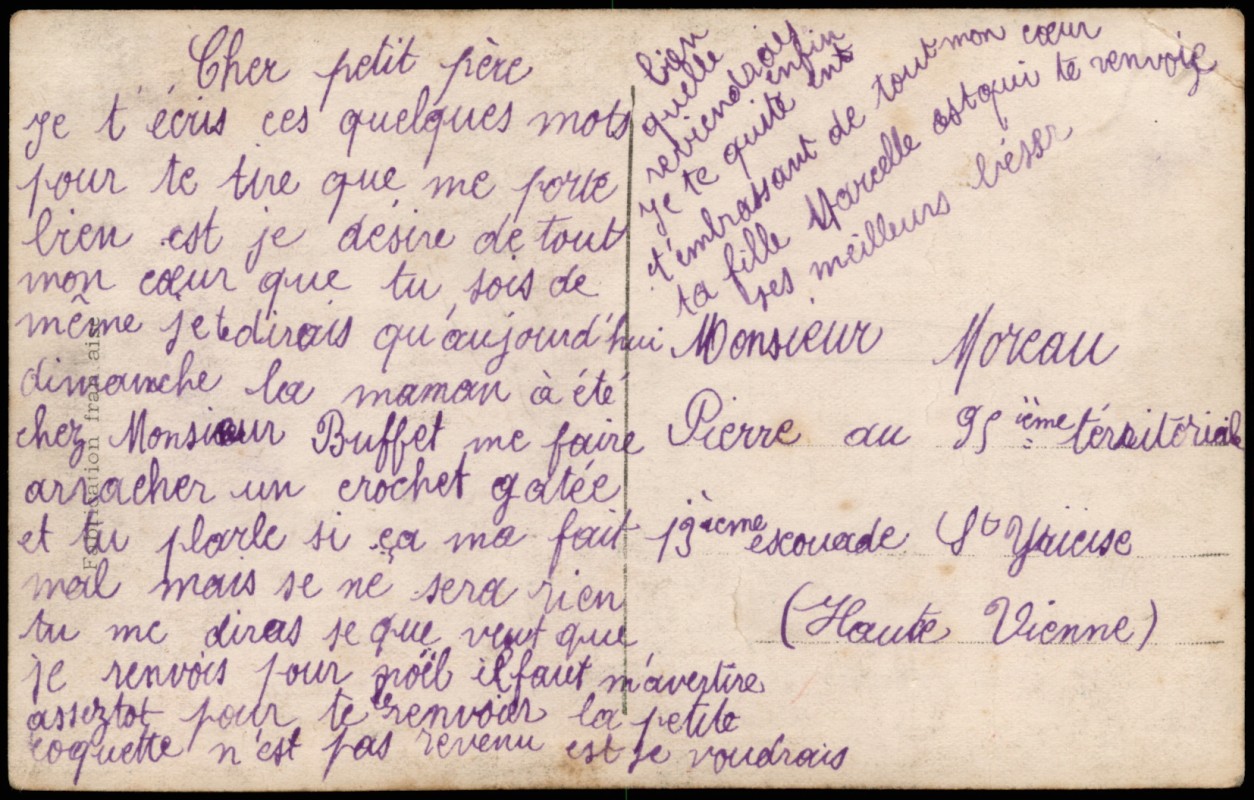 Cher petit père
Je t'écris ces quelques mots
pour te tire que me porte
bien est je désire de tout
mon cœur que tu sois de
même je te dirais qu'aujourd'hui
dimanche la maman à été
chez Monsieur Buffet me faire
arracher un crochet gatée
et tu plarle si ça ma fait
mal mais se ne sera rien
tu me diras se que veut que
je renvois pour noël il faut m'avertire
asseztot pour te le renvoier la petite
coquette n'est pas revenu est je voudrais
bien
quelle
reviendrais
enfin
Je te quite ent
t'embrassant de tout mon cœur
ta fille Marcelle est qui te renvoie
ses meilleurs bésér
Monsieur Moreau
Pierre au 95 ième térritorial
13 ième escouade St Yrieise
(Haute Vienne)
Fabrication française